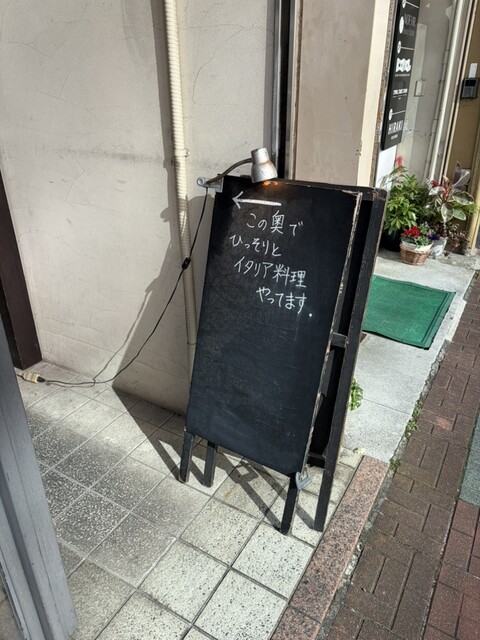 ←
この奥で
ひっそりと
イタリア料理
やってます.
HIRAKU